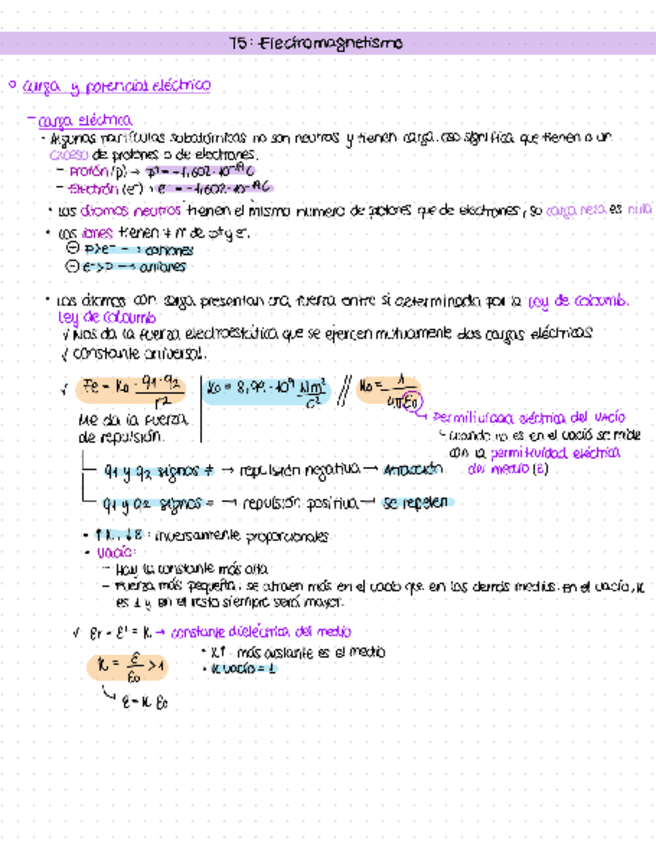 T5: Electromagnetismo
◦ Carga y potencial eléctrico
– carga eléctrica
• Algunas partículas subatómicas no son neutras y tienen carga. eso significa que tienen o un
exceso de protones o de electrones.
– Protón (p) → p⁺ = -1,602·10⁻¹⁹C
– Electrón (e⁻) → e⁻ = -1,602·10⁻¹⁹C
• Los átomos neutros tienen el mismo número de protones que de electrones, su carga neta es nula
• Los iones tienen ≠ nº de p⁺ y e⁻.
p>e⁻ → cationes
⊖ e⁻>p → aniones
• Los átomos con carga presentan una fuerza entre sí determinada por la Ley de coloumb.
Ley de coloumb
√ Nos da la fuerza electroestática que se ejercen mutuamente dos cargas eléctricas
√ constante universal.
√ Fe = K₀ · q1·q2 / r² | K₀ = 8,99·10⁹ Nm²/C² // K₀ = 1/4πε₀
Me da la fuerza
de repulsión.
→ Permitividad eléctrica del vacío
↳ cuando no es en el vacío se mide
con la permitividad eléctrica
del medio (ε)
q1 y q2 signos ≠ → repulsión negativa → Atracción
q1 y q2 signos = → repulsión positiva → se repelen
• ↑K, ↓ε : inversamente proporcionales
• Vacío:
– Hay la constante más alta
– Fuerza más pequeña, se atraen más en el vacío que en los demás medios. en el vacío, K
es 1 y en el resto siempre será mayor.
√ εr = ε' = K → constante dieléctrica del medio
K = ε/ε₀ >1
• K↑ más aislante es el medio
• K vacío = 1
↳ ε = K ε₀